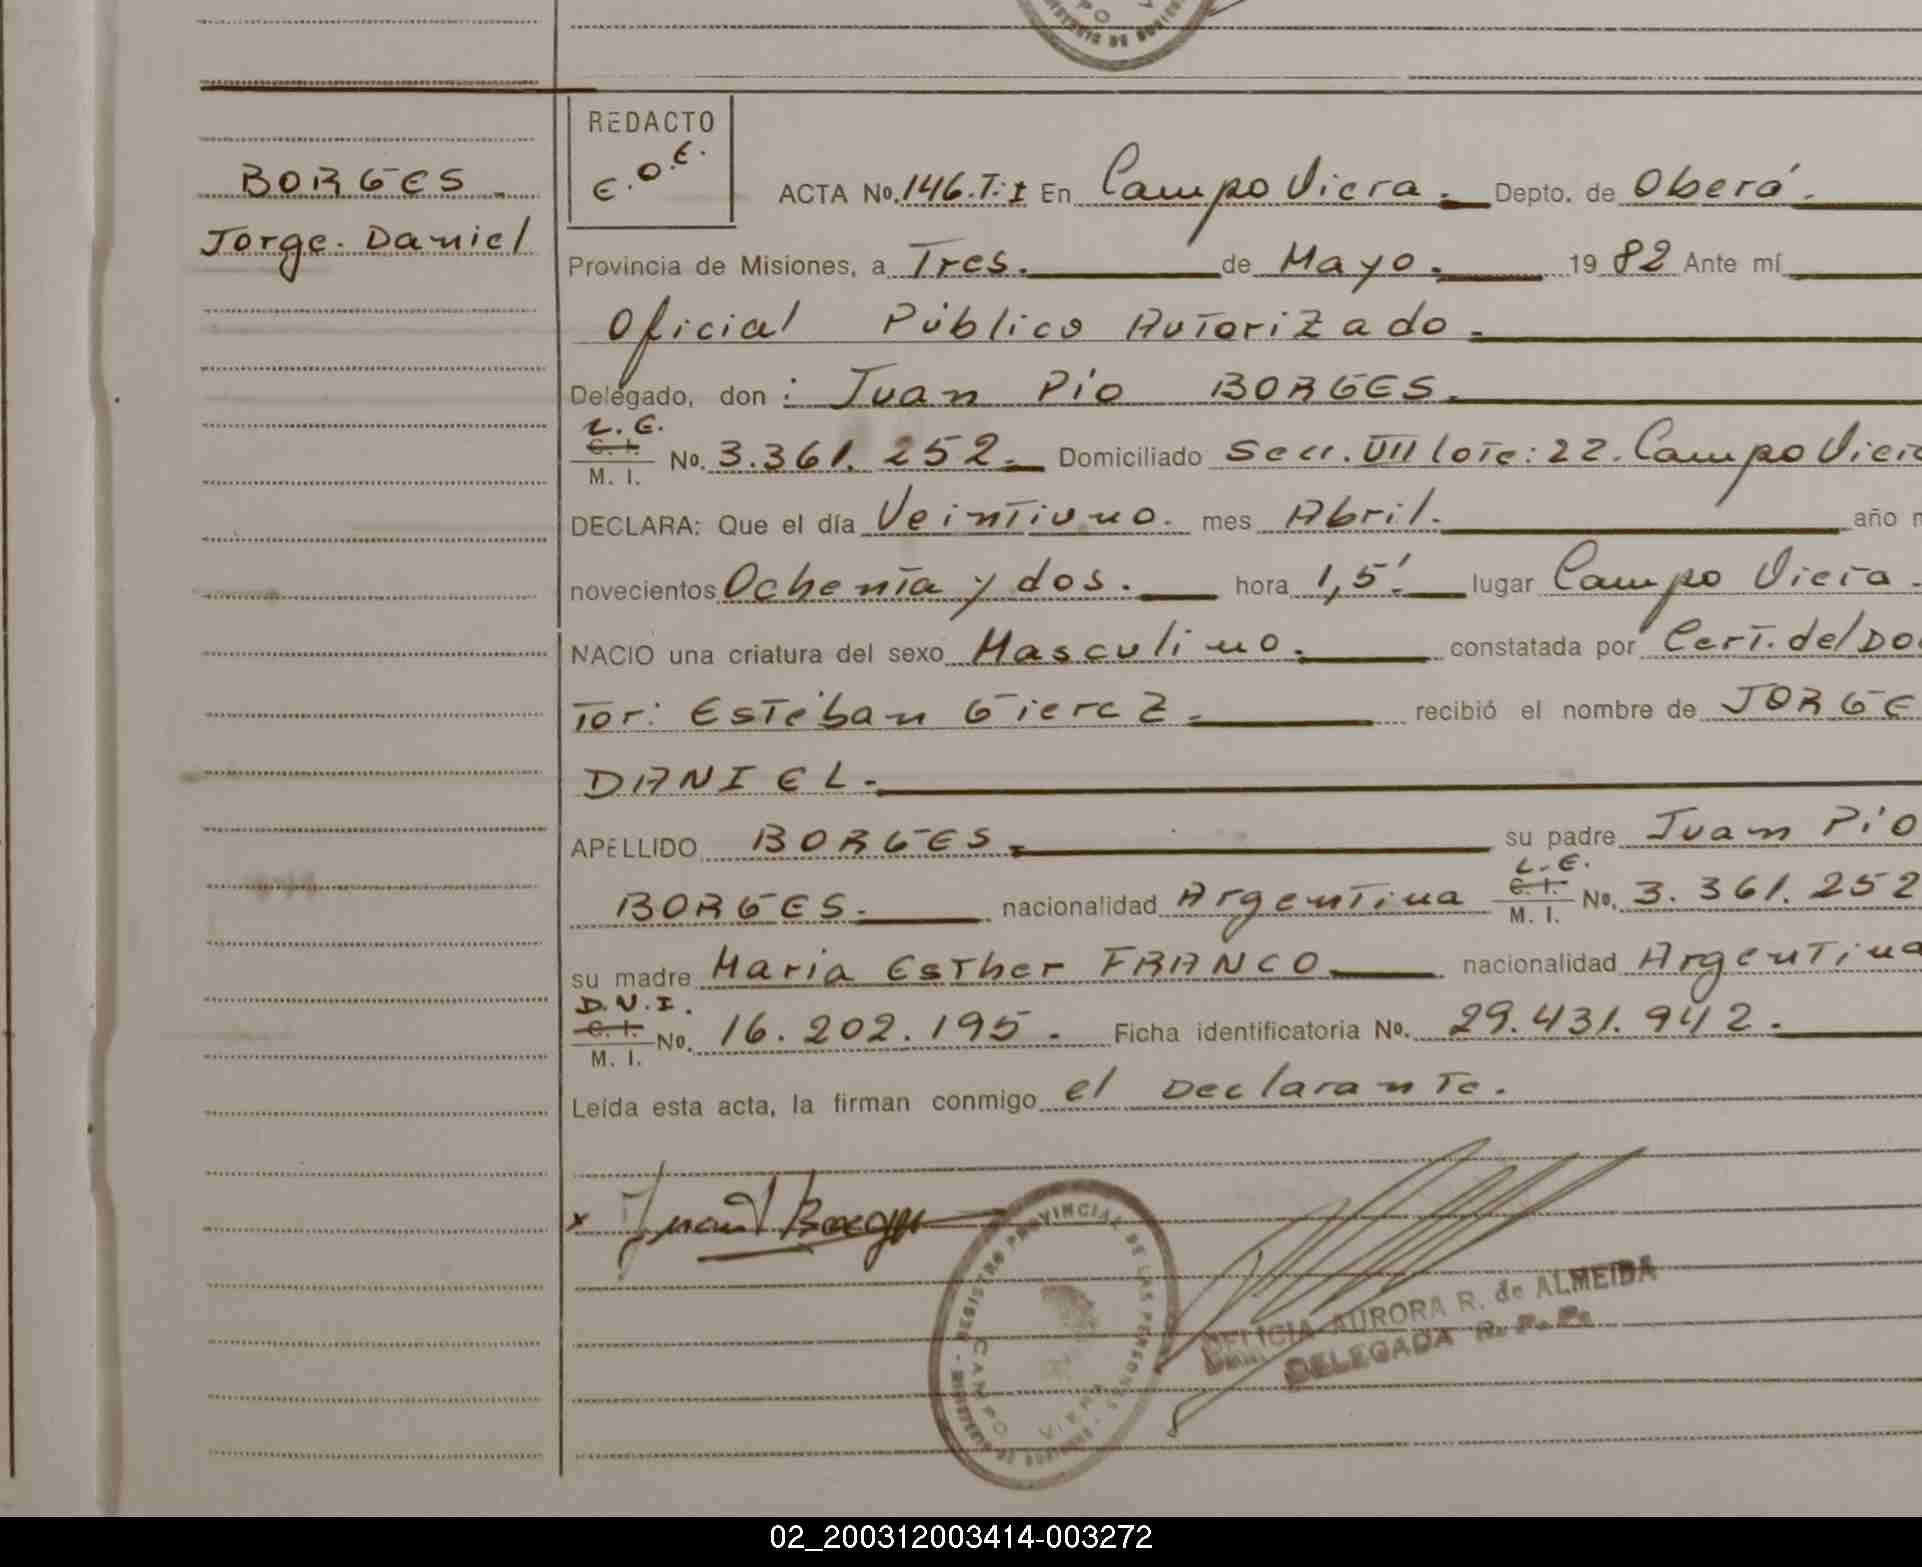 BORGES.
Jorge. Daniel
REDACTO
E.O.E.
ACTA No. 146.T:I En Campo Viera. Depto. de Oberá.
Provincia de Misiones, a Tres. de Mayo. 19 82 Ante mí
Oficial Público Autorizado.
Delegado, don : Juan Pío BORGES.
L.E.
C. I.
M. I.
No. 3.361.252. Domiciliado Secc. VII lote: 22. Campo Viera
DECLARA: Que el día Veintiuno. mes Abril. año
novecientos Ochenta y dos. hora 1,5'. lugar Campo Viera.
NACIO una criatura del sexo Masculino. constatada por Cert. del Doc
tor: Estéban Gierez. recibió el nombre de JORGE
DANIEL.
APELLIDO BORGES. su padre Juan Pío
BORGES. nacionalidad Argentina L.E. C. I. M. I. No. 3.361.252
su madre Maria Esther FRANCO nacionalidad Argentina
D.N.I.
C. I.
M. I.
No. 16.202.195. Ficha identificatoria No. 29.431.942.
Leída esta acta, la firman conmigo el Declarante.
x Juan P Borges
REGISTRO PROVINCIAL DE LAS PERSONAS
CAMPO VIERA
DELICIA AURORA R. de ALMEIDA
DELEGADA R. P. P.
02_200312003414-003272